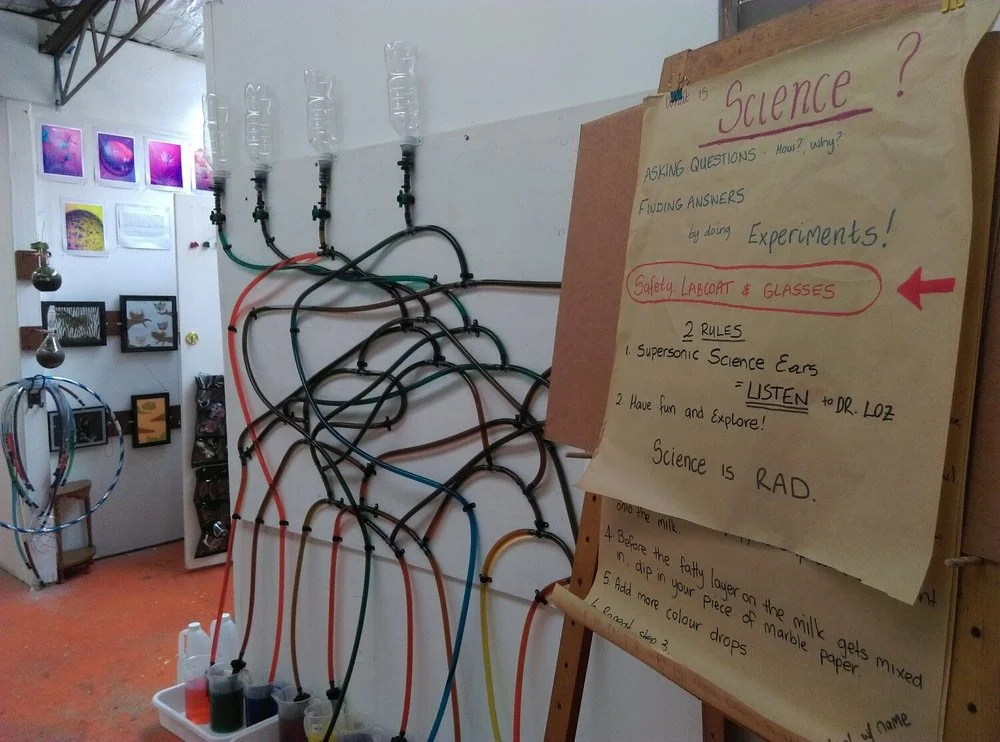 What is Science?
ASKING QUESTIONS - How?, why?
FINDING ANSWERS
by doing Experiments!
Safety: LABCOAT & GLASSES
2 RULES
1. Supersonic Science Ears
= LISTEN to DR. LOZ
2. Have fun and Explore!
Science is RAD.
onto the milk.
4. Before the fatty layer on the milk gets mixed
in, dip in your piece of marble paper.
5. Add more colour drops
6. Repeat step 3.
w/ name